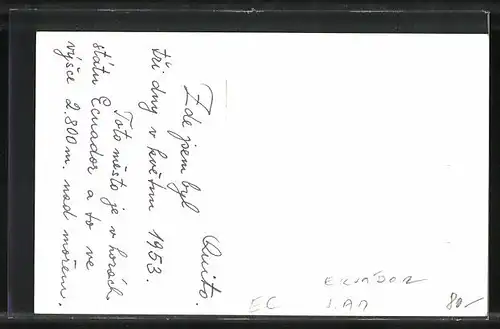 Quito.
Zde jsem byl
tři dny v květnu 1953.
Toto město je v horách
státu Ecuador a to ve
výšce 2.800 m. nad mořem.
EKVÁDOR
EC
J.AM
80/-